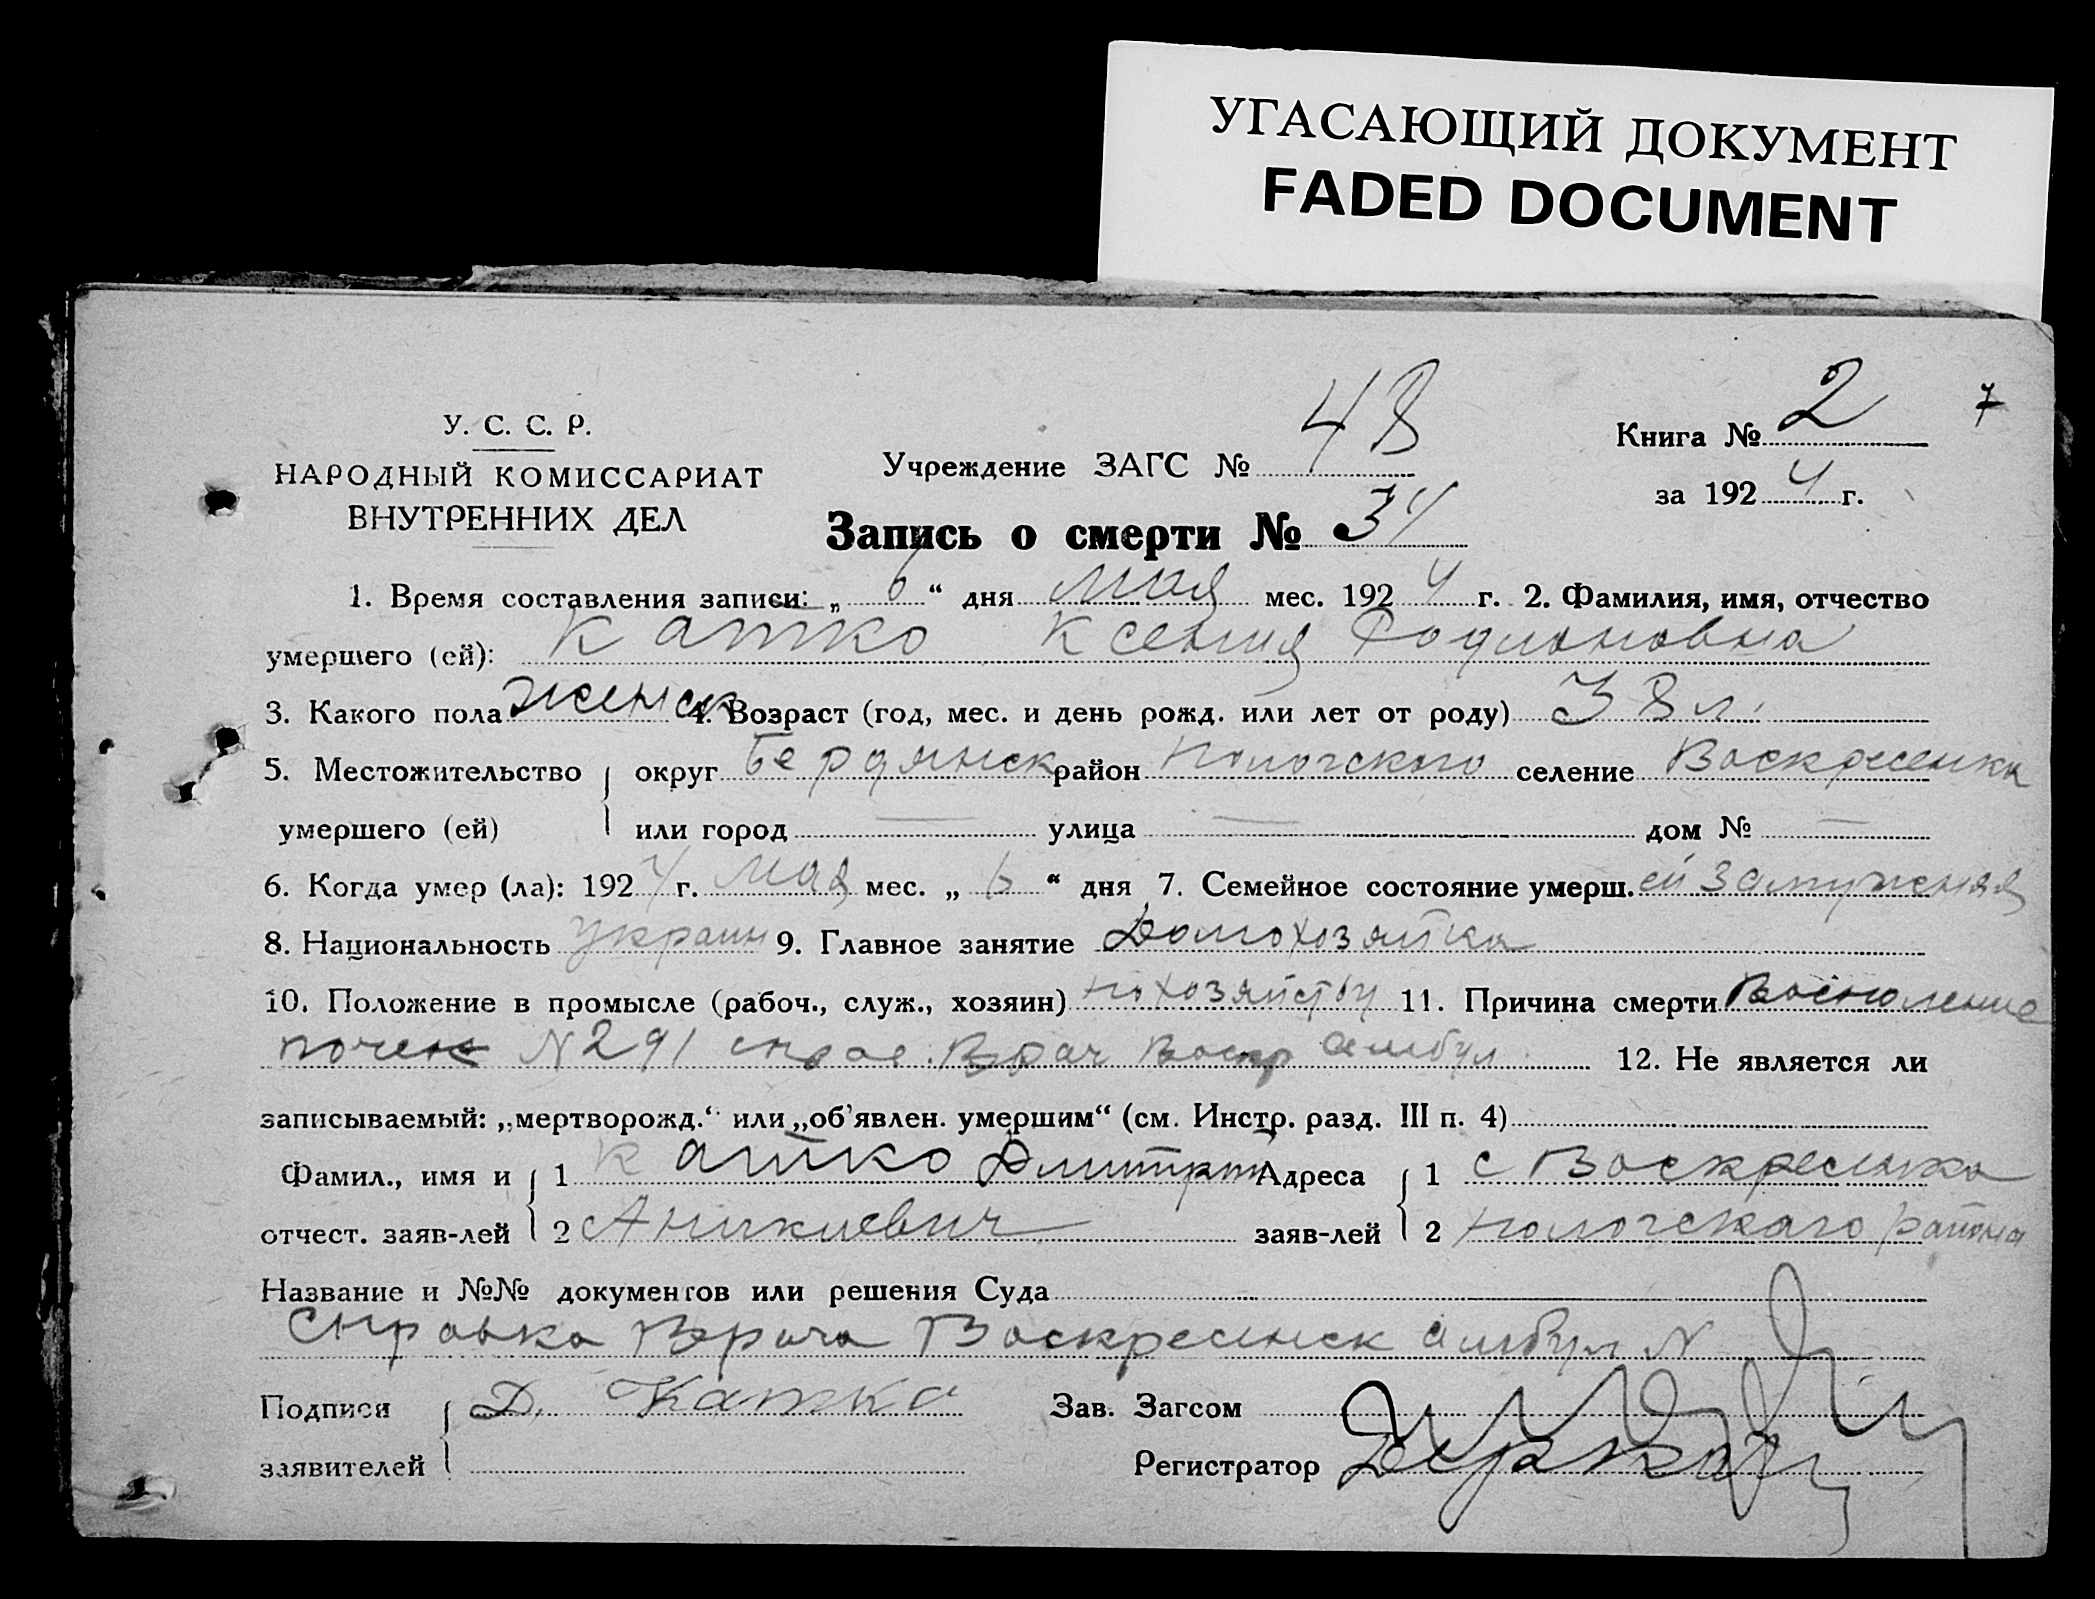 УГАСАЮЩИЙ ДОКУМЕНТ
FADED DOCUMENT
У. С. С. Р.
НАРОДНЫЙ КОМИССАРИАТ
ВНУТРЕННИХ ДЕЛ
Учреждение ЗАГС № 48
Книга № 2
7
за 1924 г.
Запись о смерти № 34
1. Время составления записи: „ 6 “ дня мая мес. 1924 г. 2. Фамилия, имя, отчество
умершего (ей): Катко Ксения Родионовна
3. Какого пола женск 4. Возраст (год, мес. и день рожд. или лет от роду) 38 л.
5. Местожительство округ Бердянск район Пологского селение Воскресенка
умершего (ей) или город — улица — дом № —
6. Когда умер (ла): 1924 г. мая мес. „ 6 “ дня 7. Семейное состояние умерш. ей Замужняя
8. Национальность украин 9. Главное занятие Домохозяйка
10. Положение в промысле (рабоч., служ., хозяин) по хозяйству 11. Причина смерти Воспаление
почек N 291 Врач Воскр амбул. 12. Не является ли
записываемый: „мертворожд.“ или „об'явлен. умершим“ (см. Инстр. разд. III п. 4)
Фамил., имя и 1 Катко Дмитрий Адреса 1 с Воскресенка
отчест. заяв-лей 2 Аникиевич заяв-лей 2 Пологскаго района
Название и №№ документов или решения Суда
Справка Врача Воскресенск амбул N
Подписи Д. Катко Зав. Загсом
заявителей Регистратор